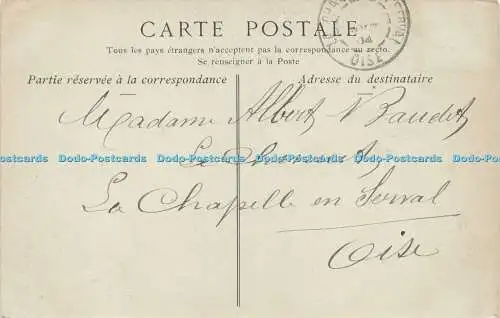 CARTE POSTALE
Tous les pays étrangers n'acceptent pas la correspondance au recto.
Se renseigner à la Poste
OISE
Partie réservée à la correspondance
Adresse du destinataire
Madame Albert Baudet
Dodo-Postcards Dodo-Postcards Dodo-Postcards Dodo-Postcards Dodo-Postcards Dodo-Postcards
La Chapelle en Serval
Oise